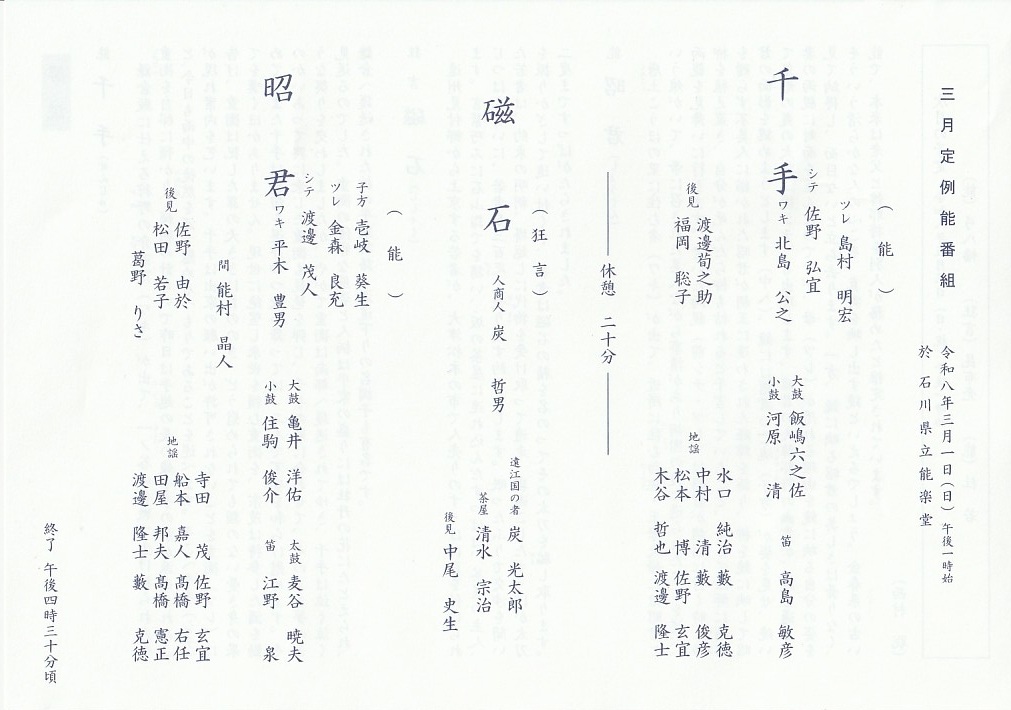 三月定例能番組
令和八年三月一日（日）午後一時始
於 石川県立能楽堂
（能）
千手
ツレ 島村 明宏
シテ 佐野 弘宜
ワキ 北島 公之
大鼓 飯嶋六之佐
小鼓 河原 清
笛 高島 敏彦
後見 渡邊荀之助
福岡 聡子
地謡
水口 純治 藪 克徳
中村 清 藪 俊彦
松本 博 佐野 玄宜
木谷 哲也 渡邊 隆士
休憩 二十分
（狂言）
磁石
人商人 炭 哲男
遠江国の者 炭 光太郎
茶屋 清水 宗治
後見 中尾 史生
（能）
昭君
子方 壱岐 葵生
ツレ 金森 良充
シテ 渡邊 茂人
ワキ 平木 豊男
間 能村 晶人
大鼓 亀井 洋佑
小鼓 住駒 俊介
太鼓 麦谷 暁夫
笛 江野 泉
後見 佐野 由於
松田 若子
葛野 りさ
地謡
寺田 茂 佐野 玄宜
船本 嘉人 髙橋 右任
田屋 邦夫 髙橋 憲正
渡邊 隆士 藪 克徳
終了 午後四時三十分頃